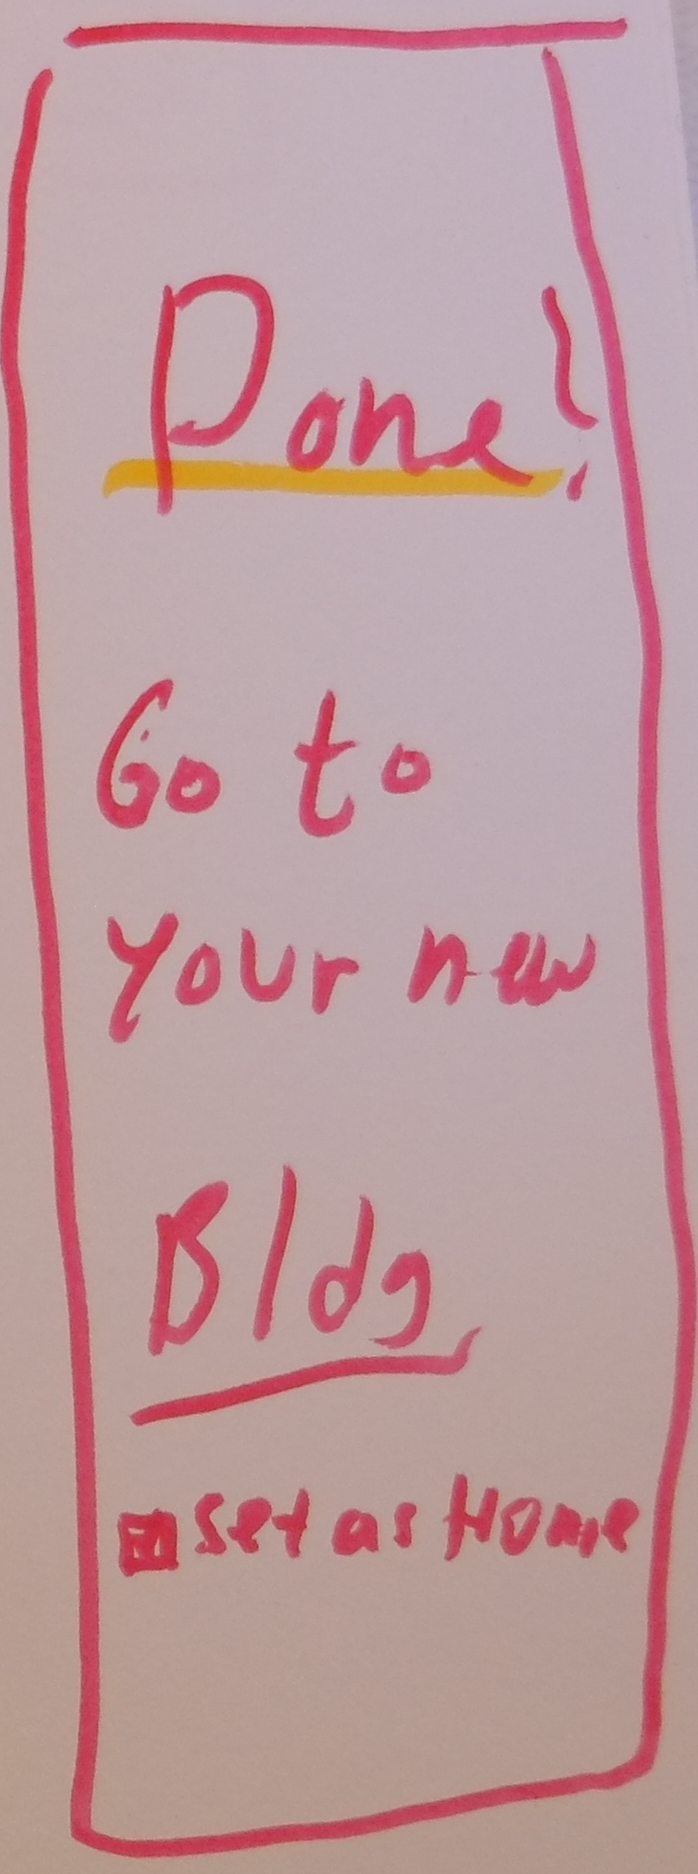 Done!
Go to
your new
Bldg
set as Home